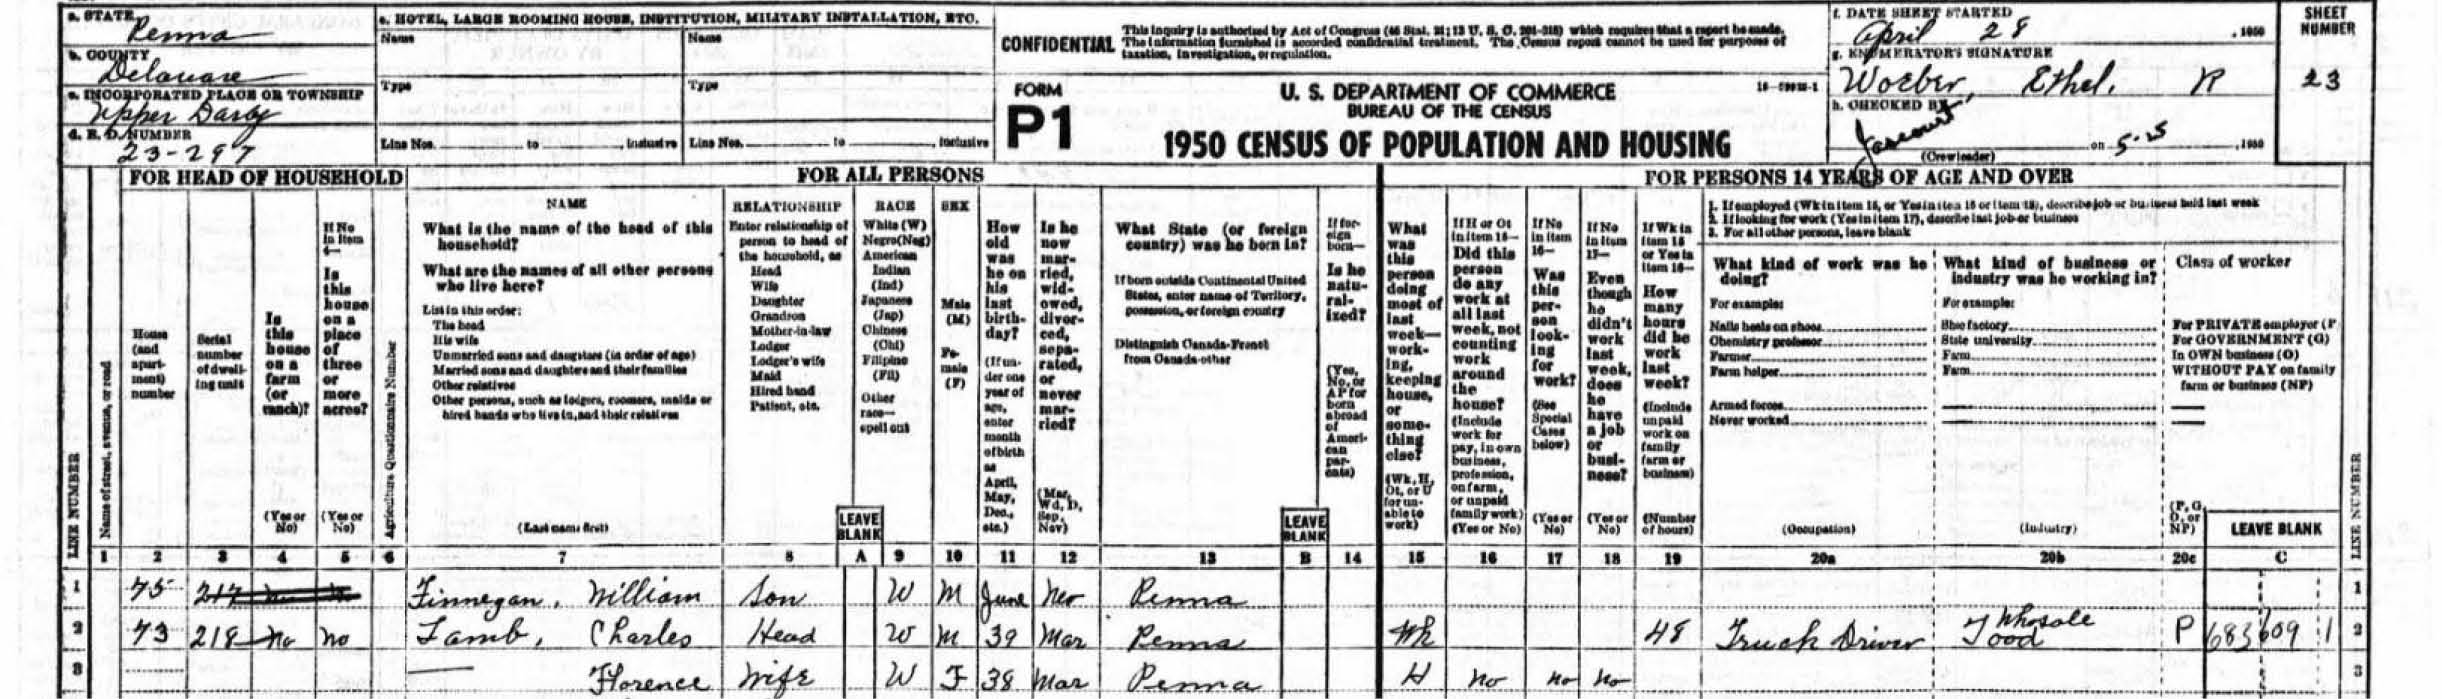 a. STATE Penna
b. COUNTY Delaware
c. INCORPORATED PLACE OR TOWNSHIP Upper Darby
d. E. D. NUMBER 23-297
e. HOTEL, LARGE ROOMING HOUSE, INSTITUTION, MILITARY INSTALLATION, ETC.
Name Name
Type Type
Line Nos. to Inclusive Line Nos. to , Inclusive
CONFIDENTIAL
This inquiry is authorized by Act of Congress (46 Stat. 21; 13 U. S. C. 201-218) which requires that a report be made.
The information furnished is accorded confidential treatment. The Census report cannot be used for purposes of
taxation, investigation, or regulation.
FORM
P1
U. S. DEPARTMENT OF COMMERCE
BUREAU OF THE CENSUS
1950 CENSUS OF POPULATION AND HOUSING
f. DATE SHEET STARTED
April 28 , 1950
g. ENUMERATOR'S SIGNATURE
Woeber, Ethel. R
h. CHECKED BY
(Crew leader) on 5-25 , 1950
SHEET
NUMBER
23
FOR HEAD OF HOUSEHOLD
FOR ALL PERSONS
FOR PERSONS 14 YEARS OF AGE AND OVER
LINE NUMBER
Name of street, avenue, or road
House
(and
apart-
ment)
number
Serial
number
of dwell-
ing unit
Is
this
house
on a
farm
(or
ranch)?
(Yes or
No)
If No
in item
4—
Is
this
house
on a
place
of
three
or
more
acres?
(Yes or
No)
Agriculture Questionnaire Number
NAME
What is the name of the head of this
household?
What are the names of all other persons
who live here?
List in this order:
The head
His wife
Unmarried sons and daughters (in order of age)
Married sons and daughters and their families
Other relatives
Other persons, such as lodgers, roomers, maids or
hired hands who live in, and their relatives
(Last name first)
RELATIONSHIP
Enter relationship of
person to head of
the household, as
Head
Wife
Daughter
Grandson
Mother-in-law
Lodger
Lodger's wife
Maid
Hired hand
Patient, etc.
LEAVE
BLANK
RACE
White (W)
Negro (Neg)
American
Indian
(Ind)
Japanese
(Jap)
Chinese
(Chi)
Filipino
(Fil)
Other
race—
spell out
SEX
Male
(M)
Fe-
male
(F)
How
old
was
he on
his
last
birth-
day?
(If un-
der one
year of
age,
enter
month
of birth
as
April,
May,
Dec.,
etc.)
Is he
now
mar-
ried,
wid-
owed,
divor-
ced,
sepa-
rated,
or
never
mar-
ried?
(Mar,
Wd, D,
Sep,
Nev)
What State (or foreign
country) was he born in?
If born outside Continental United
States, enter name of Territory,
possession, or foreign country
Distinguish Canada-French
from Canada-other
LEAVE
BLANK
If for-
eign
born—
Is he
natu-
ral-
ized?
(Yes,
No, or
AP for
born
abroad
of
Ameri-
can
par-
ents)
What
was
this
person
doing
most of
last
week—
work-
ing,
keeping
house,
or
some-
thing
else?
(Wk, H,
Ot, or U
for un-
able to
work)
If H or Ot
in item 15—
Did this
person
do any
work at
all last
week, not
counting
work
around
the
house?
(Include
work for
pay, in own
business,
profession,
on farm,
or unpaid
family work)
(Yes or No)
If No
in item
16—
Was
this
per-
son
look-
ing
for
work?
(See
Special
Cases
below)
(Yes or
No)
If No
in item
17—
Even
though
he
didn't
work
last
week,
does
he
have
a job
or
busi-
ness?
(Yes or
No)
If Wk in
item 15
or Yes in
item 16—
How
many
hours
did he
work
last
week?
(Include
unpaid
work on
family
farm or
business)
(Number
of hours)
1. If employed (Wk in item 15, or Yes in item 16 or item 18), describe job or business held last week
2. If looking for work (Yes in item 17), describe last job or business
3. For all other persons, leave blank
What kind of work was he
doing?
For example:
Nails heels on shoes
Chemistry professor
Farmer
Farm helper
Armed forces
Never worked
(Occupation)
What kind of business or
industry was he working in?
For example:
Shoe factory
State university
Farm
Farm
(Industry)
Class of worker
For PRIVATE employer (P)
For GOVERNMENT (G)
In OWN business (O)
WITHOUT PAY on family
farm or business (NP)
(P, G,
O, or
NP)
LEAVE BLANK
LINE NUMBER
1 2 3 4 5 6 7 8 A 9 10 11 12 13 B 14 15 16 17 18 19 20a 20b 20c C
1 75 217 Finnegan, William Son W M June Nev Penna 1
2 73 218 No No Lamb, Charles Head W M 39 Mar Penna Wk 48 Truck Driver Whosale Food P 683 609 1 2
3 — Florence Wife W F 38 Mar Penna H no no no 3